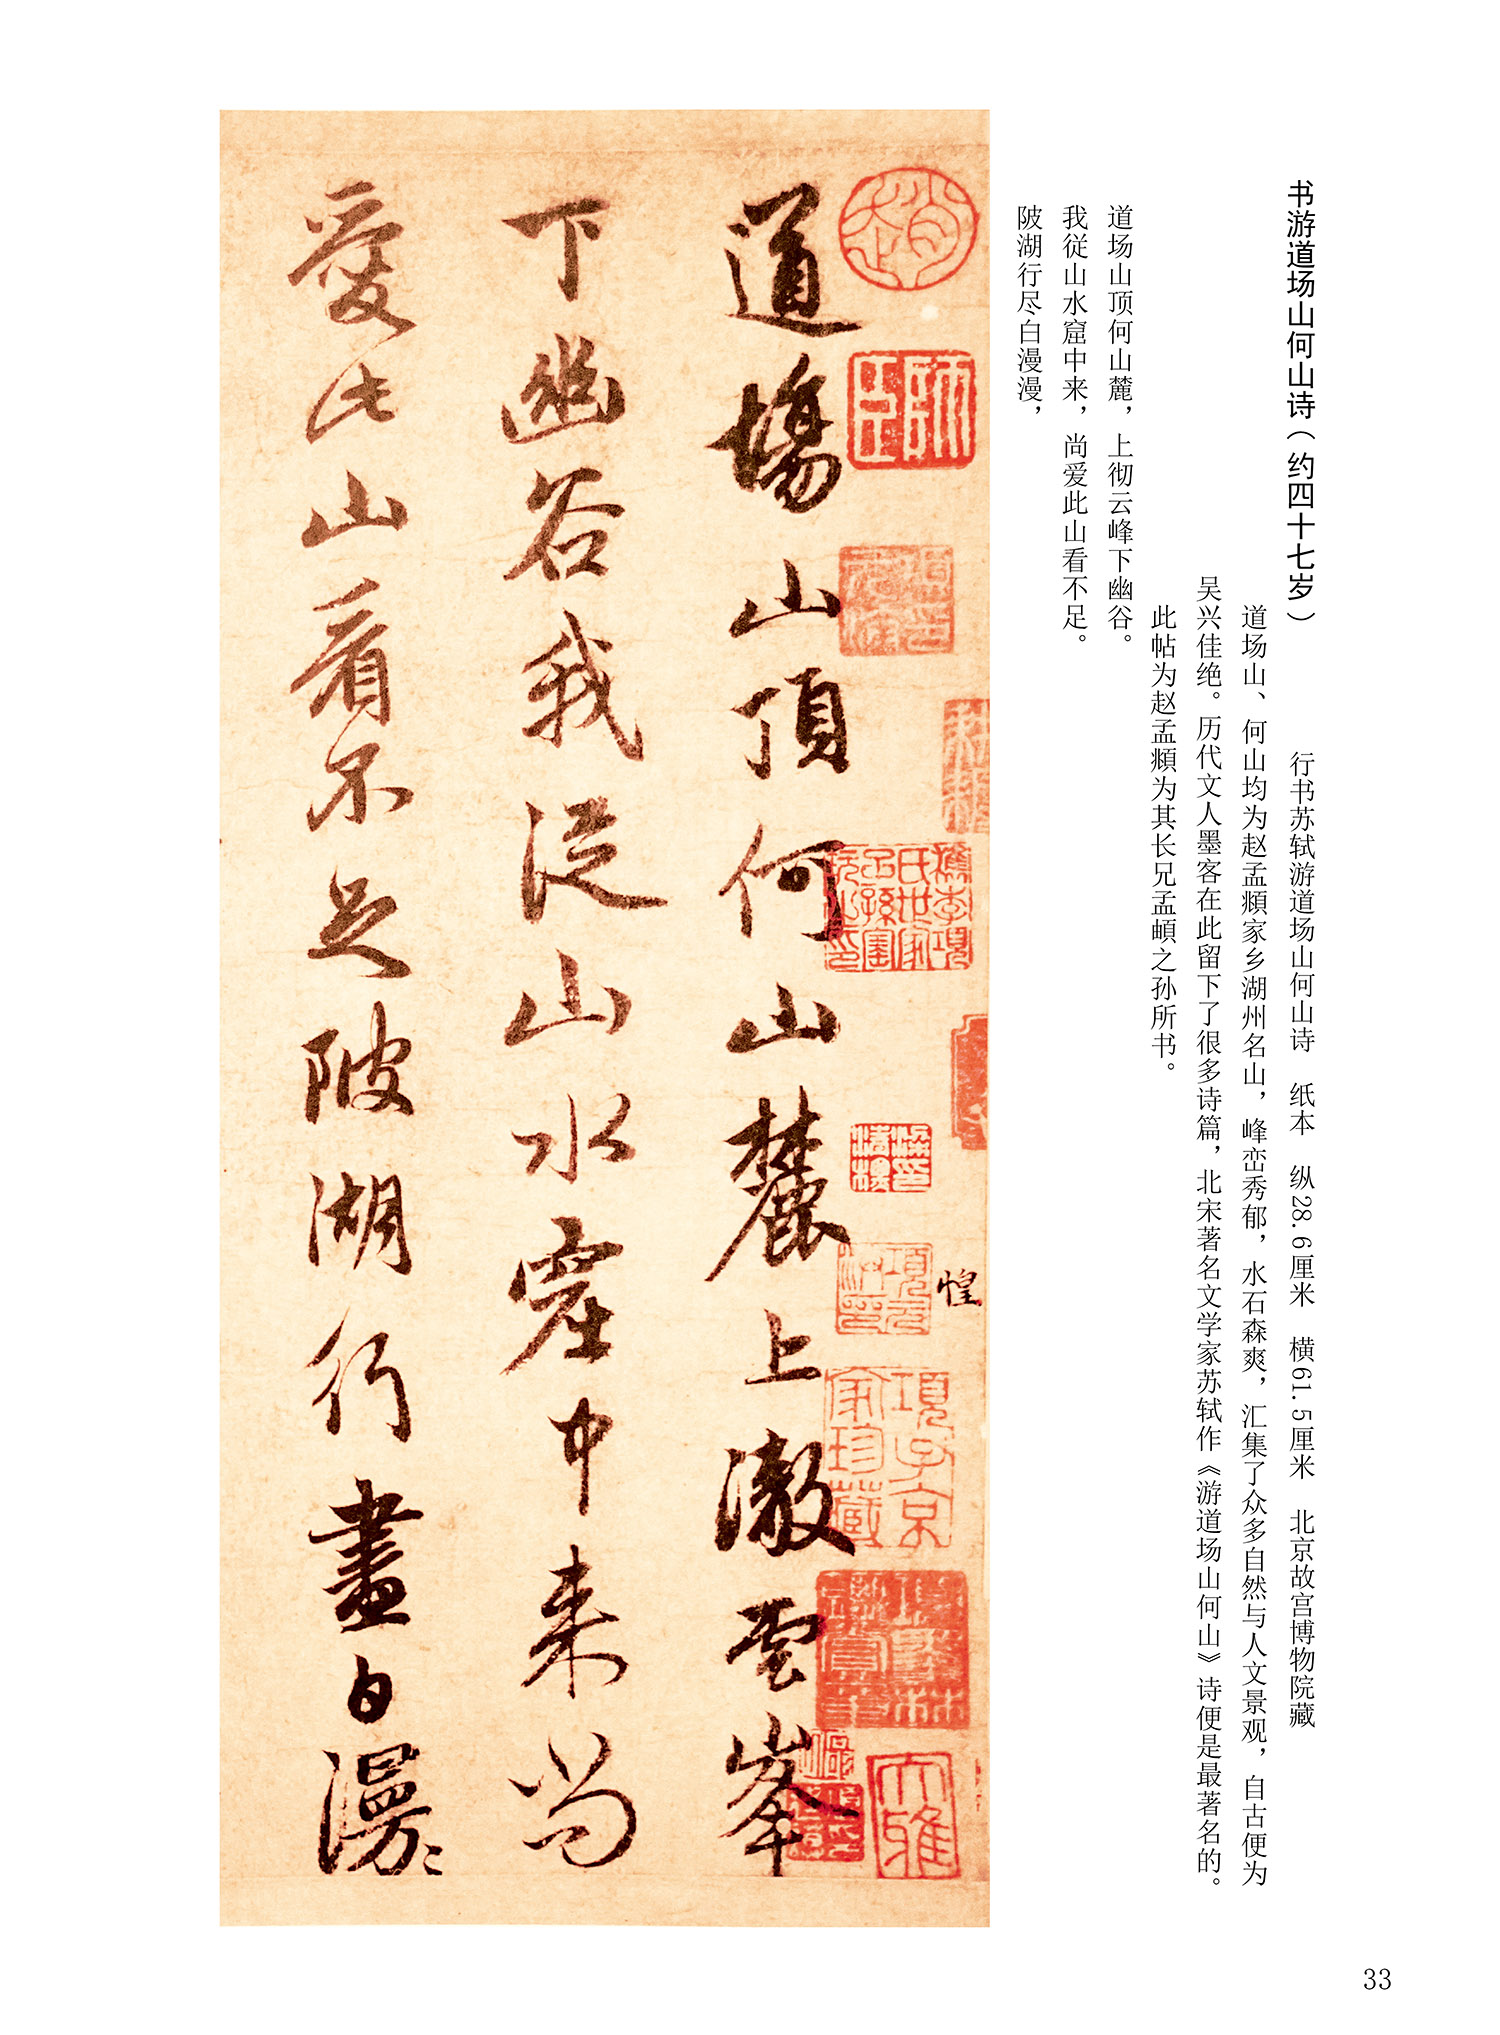 书游道场山何山诗（约四十七岁）　行书苏轼游道场山何山诗　纸本　纵28.6厘米　横61.5厘米　北京故宫博物院藏
道场山、何山均为赵孟頫家乡湖州名山，峰峦秀郁，水石森爽，汇集了众多自然与人文景观，自古便为
吴兴佳绝。历代文人墨客在此留下了很多诗篇，北宋著名文学家苏轼作《游道场山何山》诗便是最著名的。
此帖为赵孟頫为其长兄孟頔之孙所书。
道场山顶何山麓，上彻云峰下幽谷。
我従山水窟中来，尚爱此山看不足。
陂湖行尽白漫漫，
趙
師
項子京家珍藏
大雅
惶
道場山頂何山麓上澈雲峯
下幽谷我從山水窟中来尚
愛此山看不足陂湖行盡白漫〻
33